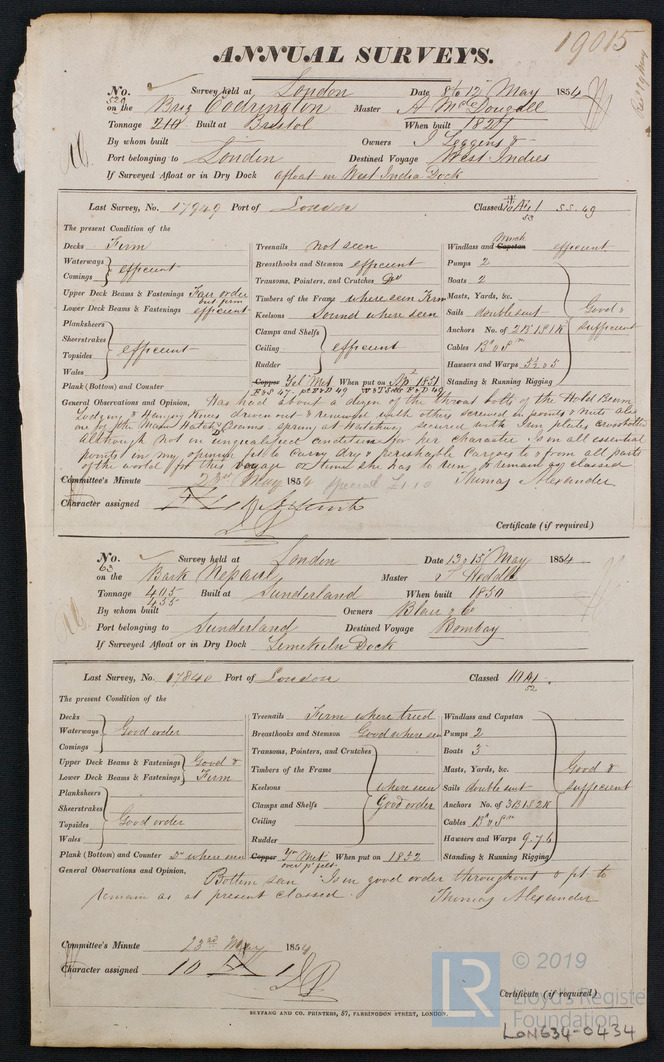 19015
ANNUAL SURVEYS.
No. Survey held at London Date 8 to 12 May 1854
529 on the Brig Codrington Master A McDougall
Tonnage 210 Built at Bristol When built 1827
By whom built Owners J Leggins &
Port belonging to London Destined Voyage West Indies
If Surveyed Afloat or in Dry Dock afloat in West India Dock
Last Survey, No. 17949 Port of London Classed S.S. 49
53
The present Condition of the
Decks Firm
Waterways
Comings
efficient
Upper Deck Beams & Fastenings Fair order but firm
Lower Deck Beams & Fastenings efficient
Planksheers
Sheerstrakes
Topsides
Wales
efficient
Plank (Bottom) and Counter
Treenails not seen
Breasthooks and Stemson efficient
Transoms, Pointers, and Crutches Do
Timbers of the Frame where seen Firm
Keelsons Sound where seen
Clamps and Shelfs
Ceiling
Rudder
efficient
Copper Yel Met When put on 1851
Windlass and Capstan Winch efficient
Pumps 2
Boats 2
Masts, Yards, &c.
Sails double suit
Anchors No. of 2B 1S 1K
Cables
Hawsers and Warps
Standing & Running Rigging
Good & sufficient
General Observations and Opinion, Has had about a dozen of the throat bolts of the Hold Beam
Lodging & Hanging Knees driven out & renewed with others screwed in points & Nuts also
one of the Main Hatch Beams sprung at Hatchway secured with Iron plates crossbolted
Although not in unqualified condition for her character Is in all essential
points in my opinion fit to carry dry & perishable Cargoes to & from all parts
of the world for this voyage or time she has to run, & remain as classed
Committee's Minute 23rd May 1854 special £1.10 Thomas Alexander
Character assigned
Certificate (if required)
No. Survey held at London Date 13 & 15 May 1854
63 on the Bark Nepaul Master T Heddle
Tonnage 405 Built at Sunderland When built 1850
455
By whom built Owners Blair & Co
Port belonging to Sunderland Destined Voyage Bombay
If Surveyed Afloat or in Dry Dock Limekiln Dock
Last Survey, No. 17840 Port of London Classed 10 A1
52
The present Condition of the
Decks
Waterways
Comings
Good order
Upper Deck Beams & Fastenings
Lower Deck Beams & Fastenings
Good & Firm
Planksheers
Sheerstrakes
Topsides
Wales
Good order
Plank (Bottom) and Counter Do where seen
Treenails Firm where tried
Breasthooks and Stemson Good where seen
Transoms, Pointers, and Crutches
Timbers of the Frame
Keelsons
Clamps and Shelfs
Ceiling
Rudder
where seen Good order
Copper Y Met When put on 1852
over pt felt
Windlass and Capstan
Pumps 2
Boats 3
Masts, Yards, &c.
Sails double suit
Anchors No. of 3B 1S 2K
Cables
Hawsers and Warps 9-7-6
Standing & Running Rigging
Good & sufficient
General Observations and Opinion, Bottom seen Is in good order throughout & pt to
remain as at present classed. Thomas Alexander
Committee's Minute 23rd May 1854
Character assigned 10 A 1
Certificate (if required)
SEYFANG AND CO. PRINTERS, 57, FARRINGDON STREET, LONDON.
© 2019
LR
Lloyd's Register
Foundation
LON634-0434